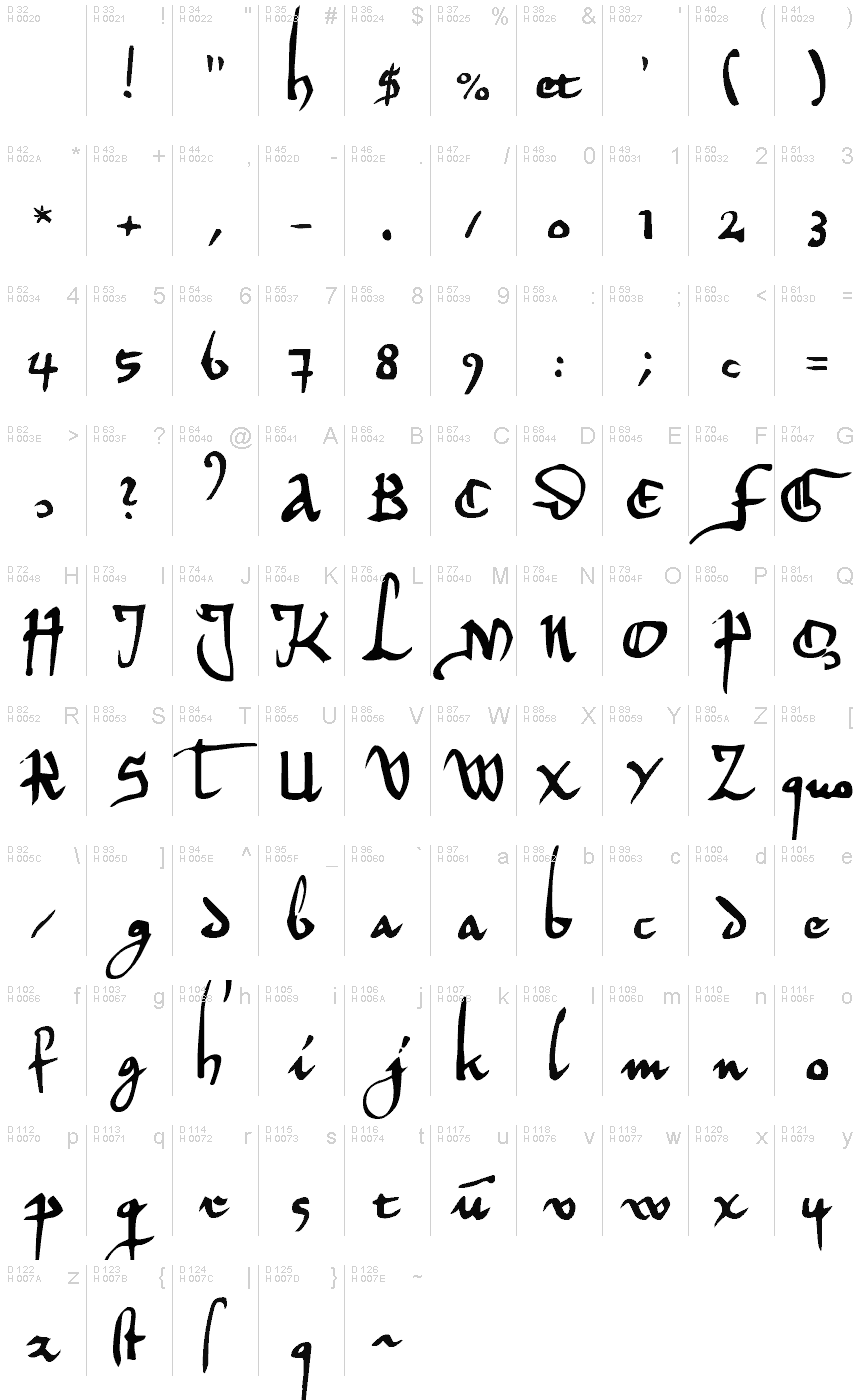 D 32 H 0020 D 33 H 0021 ! D 34 H 0022 " D 35 H 0023 # D 36 H 0024 $ D 37 H 0025 % D 38 H 0026 & D 39 H 0027 ' D 40 H 0028 ( D 41 H 0029 )
! " h $ % et ' ( )
D 42 H 002A * D 43 H 002B + D 44 H 002C , D 45 H 002D - D 46 H 002E . D 47 H 002F / D 48 H 0030 0 D 49 H 0031 1 D 50 H 0032 2 D 51 H 0033 3
* + , - . / 0 1 2 3
D 52 H 0034 4 D 53 H 0035 5 D 54 H 0036 6 D 55 H 0037 7 D 56 H 0038 8 D 57 H 0039 9 D 58 H 003A : D 59 H 003B ; D 60 H 003C < D 61 H 003D =
4 5 6 7 8 9 : ; c =
D 62 H 003E > D 63 H 003F ? D 64 H 0040 @ D 65 H 0041 A D 66 H 0042 B D 67 H 0043 C D 68 H 0044 D D 69 H 0045 E D 70 H 0046 F D 71 H 0047 G
? 9 A B C D E F G
D 72 H 0048 H D 73 H 0049 I D 74 H 004A J D 75 H 004B K D 76 H 004C L D 77 H 004D M D 78 H 004E N D 79 H 004F O D 80 H 0050 P D 81 H 0051 Q
H I J K L M N O P Q
D 82 H 0052 R D 83 H 0053 S D 84 H 0054 T D 85 H 0055 U D 86 H 0056 V D 87 H 0057 W D 88 H 0058 X D 89 H 0059 Y D 90 H 005A Z D 91 H 005B [
R S T U V W X Y Z quo
D 92 H 005C \ D 93 H 005D ] D 94 H 005E ^ D 95 H 005F _ D 96 H 0060 ` D 97 H 0061 a D 98 H 0062 b D 99 H 0063 c D 100 H 0064 d D 101 H 0065 e
/ g d b a a b c d e
D 102 H 0066 f D 103 H 0067 g D 105 H 0069 h D 105 H 0069 i D 106 H 006A j D 107 H 006B k D 108 H 006C l D 109 H 006D m D 110 H 006E n D 111 H 006F o
f g h' i j k l m n o
D 112 H 0070 p D 113 H 0071 q D 114 H 0072 r D 115 H 0073 s D 116 H 0074 t D 117 H 0075 u D 118 H 0076 v D 119 H 0077 w D 120 H 0078 x D 121 H 0079 y
p q r s t ū v w x y
D 122 H 007A z D 123 H 007B { D 124 H 007C | D 125 H 007D } D 126 H 007E ~
z ſt ſ q ~